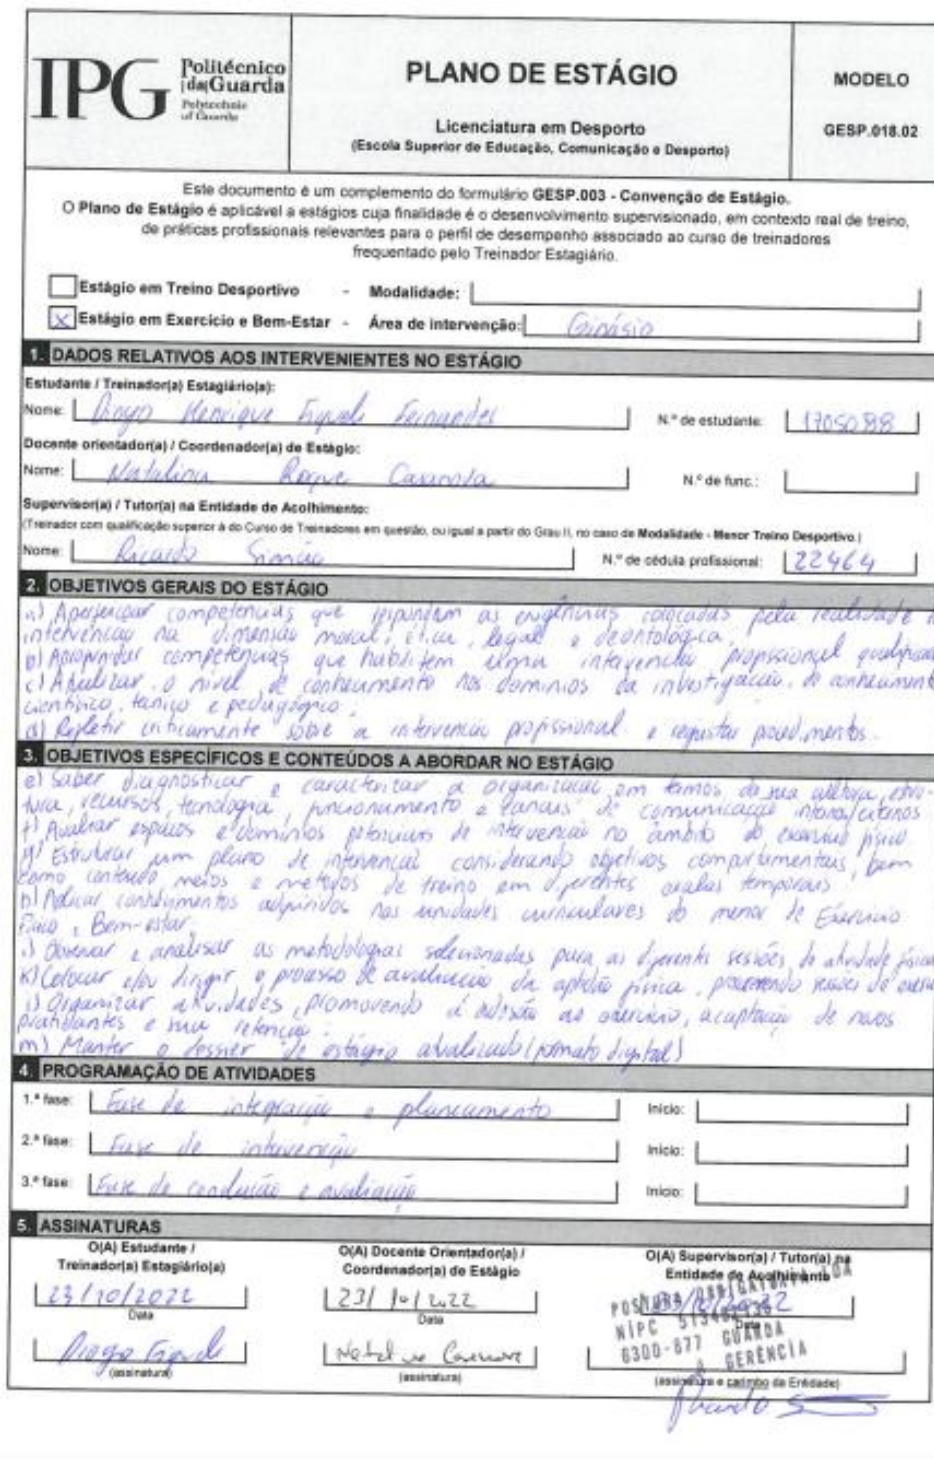 IPG Politécnico
|da|Guarda
Polytechnic
of Guarda
PLANO DE ESTÁGIO
Licenciatura em Desporto
(Escola Superior de Educação, Comunicação e Desporto)
MODELO
GESP.018.02
Este documento é um complemento do formulário GESP.003 - Convenção de Estágio.
O Plano de Estágio é aplicável a estágios cuja finalidade é o desenvolvimento supervisionado, em contexto real de treino,
de práticas profissionais relevantes para o perfil de desempenho associado ao curso de treinadores
frequentado pelo Treinador Estagiário.
Estágio em Treino Desportivo - Modalidade:
X Estágio em Exercício e Bem-Estar - Área de intervenção: Ginásio
1. DADOS RELATIVOS AOS INTERVENIENTES NO ESTÁGIO
Estudante / Treinador(a) Estagiário(a):
Nome: Diogo Henrique Fernandes N.º de estudante: 1705088
Docente orientador(a) / Coordenador(a) de Estágio:
Nome: Natalina Roque Casanova N.º de func.:
Supervisor(a) / Tutor(a) na Entidade de Acolhimento:
(Treinador com qualificação superior à do Curso de Treinadores em questão, ou igual a partir do Grau II, no caso de Modalidade - Menor Treino Desportivo.)
Nome: Ricardo Simão N.º de cédula profissional: 22464
2. OBJETIVOS GERAIS DO ESTÁGIO
a) Aperfeiçoar competências que respondam as exigências colocadas pela realidade
intervenção na dimensão moral, ética, legal e deontológica.
b) Aprofundar competências que habilitem uma intervenção profissional qualificada
c) o nível de conhecimento nos domínios da investigação, do conhecimento
científico, técnico e pedagógico.
d) Refletir criticamente sobre a intervenção profissional e reajustar procedimentos.
3. OBJETIVOS ESPECÍFICOS E CONTEÚDOS A ABORDAR NO ESTÁGIO
e) Saber diagnosticar e caracterizar a organização em termos da sua cultura, estru-
tura, recursos, tecnologia, funcionamento e canais de comunicação
f) Avaliar espaços e domínios potenciais de intervenção no âmbito do exercício físico
g) Estruturar um plano de intervenção considerando objetivos comportamentais, bem
como conteúdo meios e métodos de treino em diferentes escalas temporais
h) Aplicar conhecimentos adquiridos nas unidades curriculares do menor de Exercício
Físico e Bem-estar.
i) Observar e analisar as metodologias selecionadas para as diferentes sessões de atividade física
k) Colocar e/ou dirigir o processo de avaliação da aptidão física, sessões de
Organizar atividades, promovendo à adesão ao exercício, a captação de novos
praticantes e sua retenção.
m) Manter o dossier de estágio atualizado (formato digital)
4. PROGRAMAÇÃO DE ATIVIDADES
1.ª fase: Fase de integração e planeamento Início:
2.ª fase: Fase de intervenção Início:
3.ª fase: Fase de conclusão e avaliação Início:
5. ASSINATURAS
O(A) Estudante /
Treinador(a) Estagiário(a)
23/10/2022
Data
Diogo
(assinatura)
O(A) Docente Orientador(a) /
Coordenador(a) de Estágio
23/10/2022
Data
Natalina Casanova
(assinatura)
O(A) Supervisor(a) / Tutor(a) na
Entidade de Acolhimento
POSTURA OBRIGATÓRIA LDA
NIPC
Data
6300-877 GUARDA
A GERÊNCIA
(assinatura e carimbo da Entidade)
Ricardo